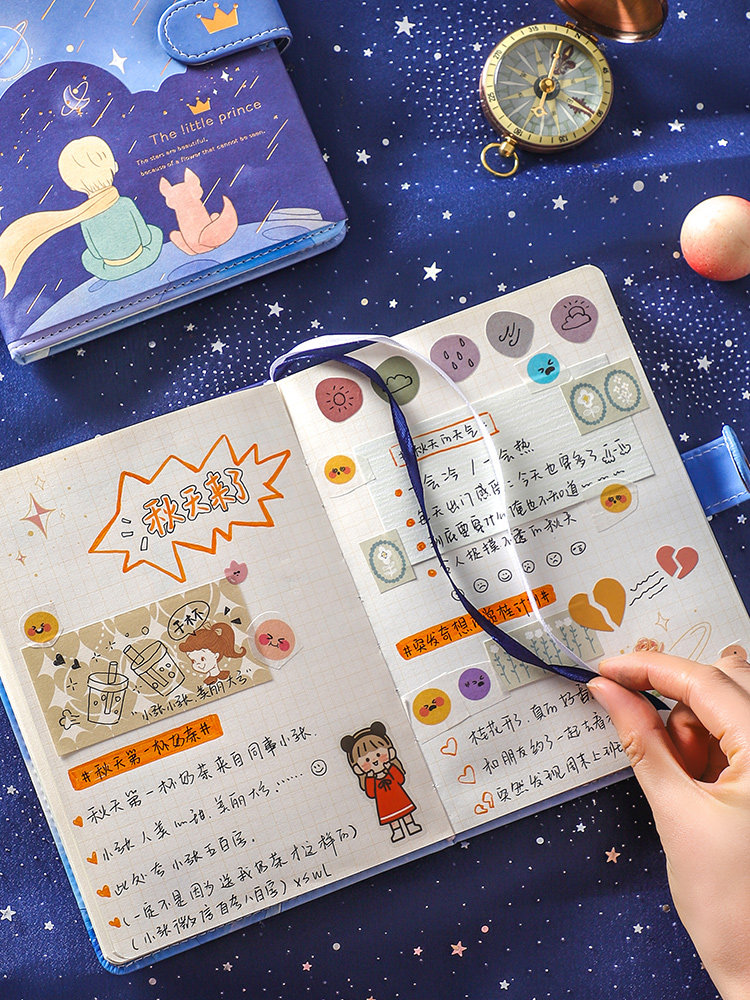 The little prince
The stars are beautiful,
because of a flower that cannot be seen.
秋天来了
干杯
"小张小张,美丽大方"
#秋天第一杯奶茶#
秋天第一杯奶茶来自同事小张.
小张人美心甜.美丽大方......
此处夸小张五百字.
(一定不是因为送我奶茶才这样的)
(小张微信自夸八百字) xswl
#秋天的天气#
一会冷/一会热
每天出门感觉:今天也穿多了
到底要穿什么俺也不知道
人捉摸不透的秋天
#突发奇想 桂计划#
桂花开了,真的好香
和朋友约了一起去看
突然发现周末上班